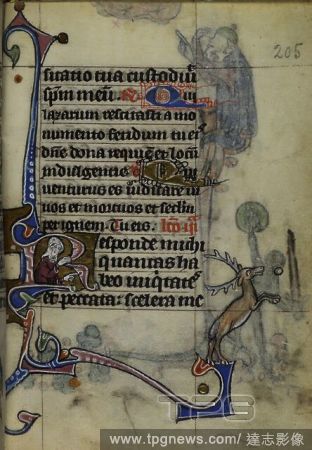 205
sitatio tua custodiuit
spm meu.
lazarum resuscitasti a mo
numento fetidum tu ei
dne dona requie et locu
indulgentie
uenturus es iudicare ui
uos et mortuos et seclm
per ignem. Tu eis.
Responde michi
quantas ha
beo iniqtates
et peccata: scelera me
TPG
www.tpgnews.com/ 達志影像